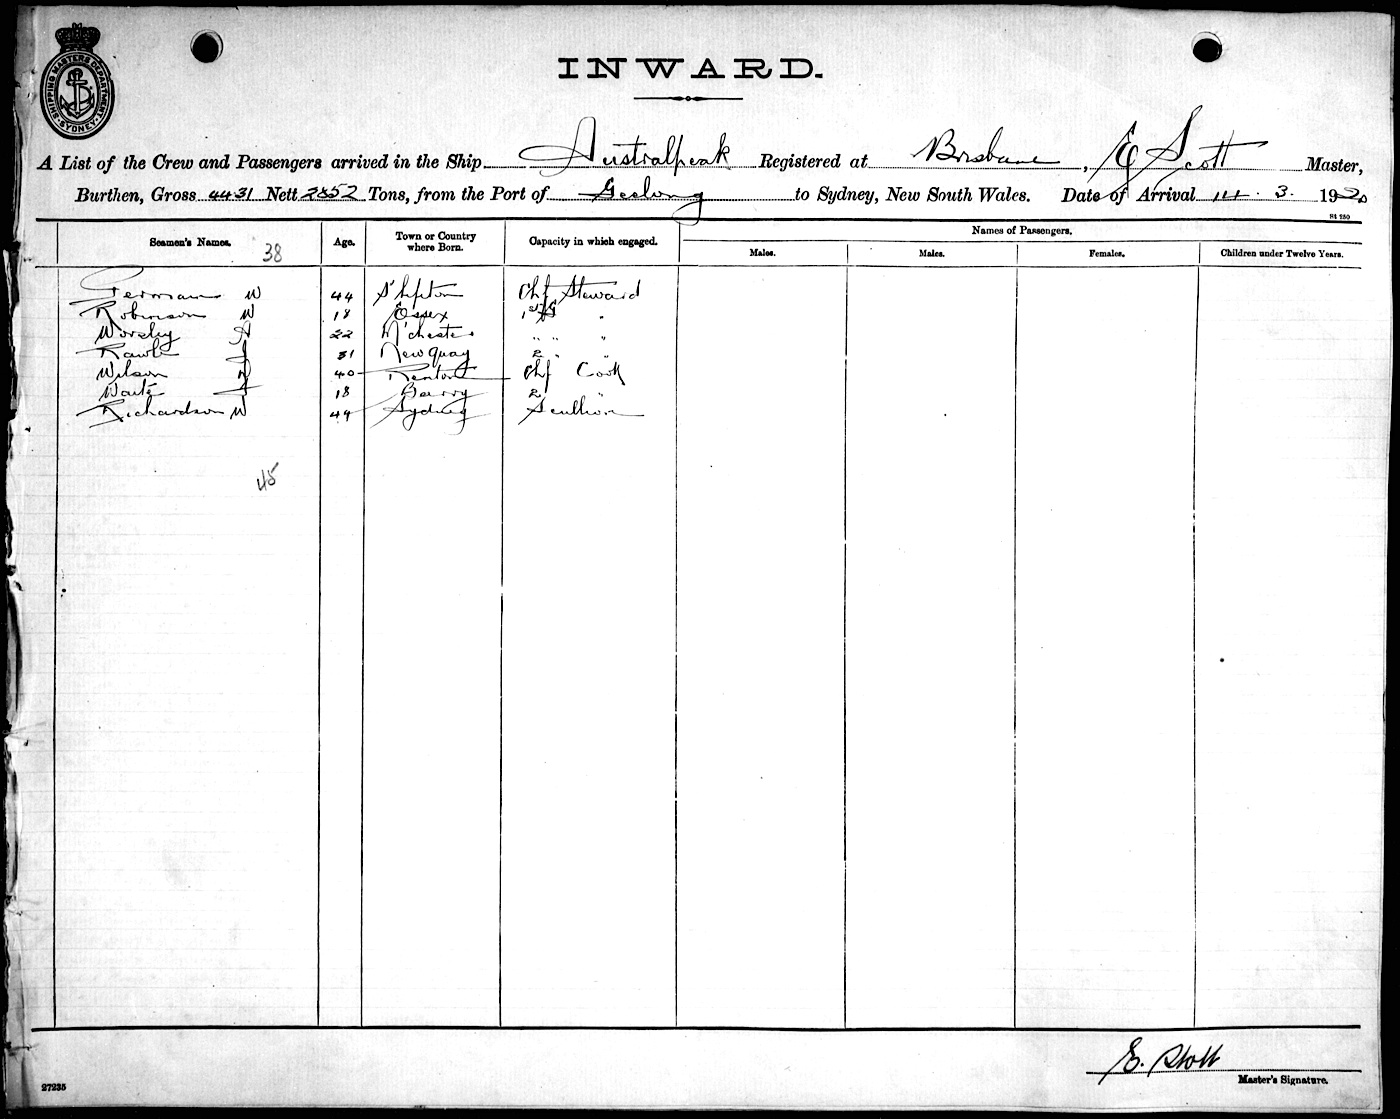 SHIPPING MASTERS DEPARTMENT
SYDNEY
INWARD.
A List of the Crew and Passengers arrived in the Ship Australpeak Registered at Brisbane, E Scott Master,
Burthen, Gross 4431 Nett 2852 Tons, from the Port of Geelong to Sydney, New South Wales. Date of Arrival 14. 3. 1920
St 250
Seamen's Names. 38 Age. Town or Country where Born. Capacity in which engaged. Names of Passengers.
Males. Males. Females. Children under Twelve Years.
German W 44 Shipton Chf Steward
Robinson W 18 Essex 1st "
Worsley A 22 M'chester " " "
Rawle J 31 Newquay 2 " "
Wilson 40 Renton Chf Cook
Waite J 18 Barry 2 "
Richardson W 44 Sydney Scullion
45
E. Scott
27235
Master's Signature.